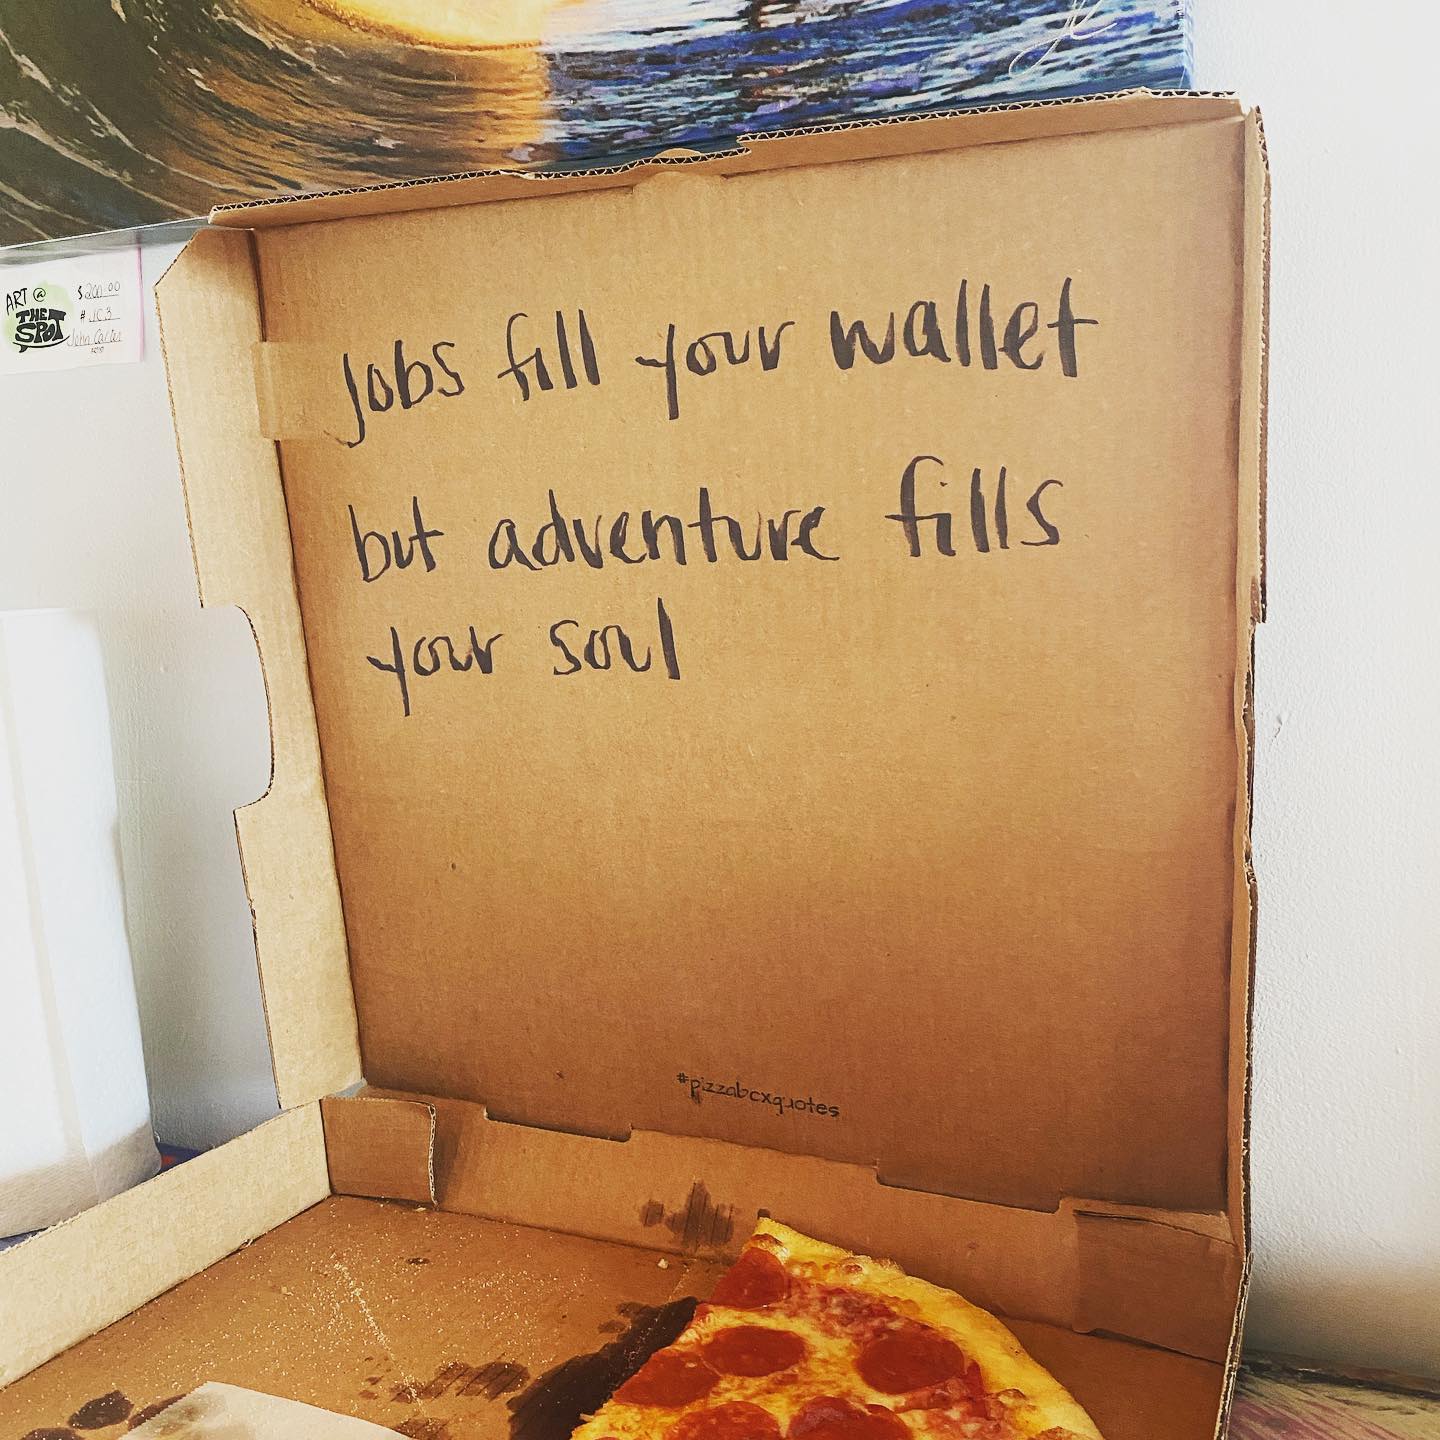 ART @
THE
SPOT
$200.00
# JC3
John Carter
ARTIST
jobs fill your wallet
but adventure fills
your soul
#pizzabcxquotes